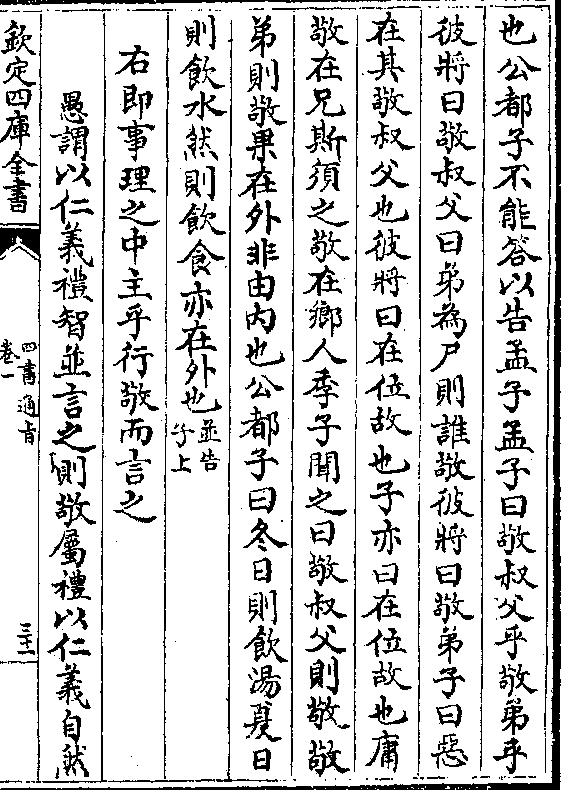 也公都子不能答以告孟子孟子曰敬叔父乎敬弟乎
彼將曰敬叔父曰弟為尸則誰敬彼將曰敬弟子曰惡
在其敬叔父也彼將曰在位故也子亦曰在位故也庸
敬在兄斯須之敬在鄉人季子聞之曰敬叔父則敬敬
弟則敬果在外非由内也公都子曰冬日則飲湯夏日
則飲水然則飲食亦在外也並告
子上
右即事理之中主乎行敬而言之
愚謂以仁義禮智並言之則敬屬禮以仁義自然
欽定四庫全書
四書通旨
卷一